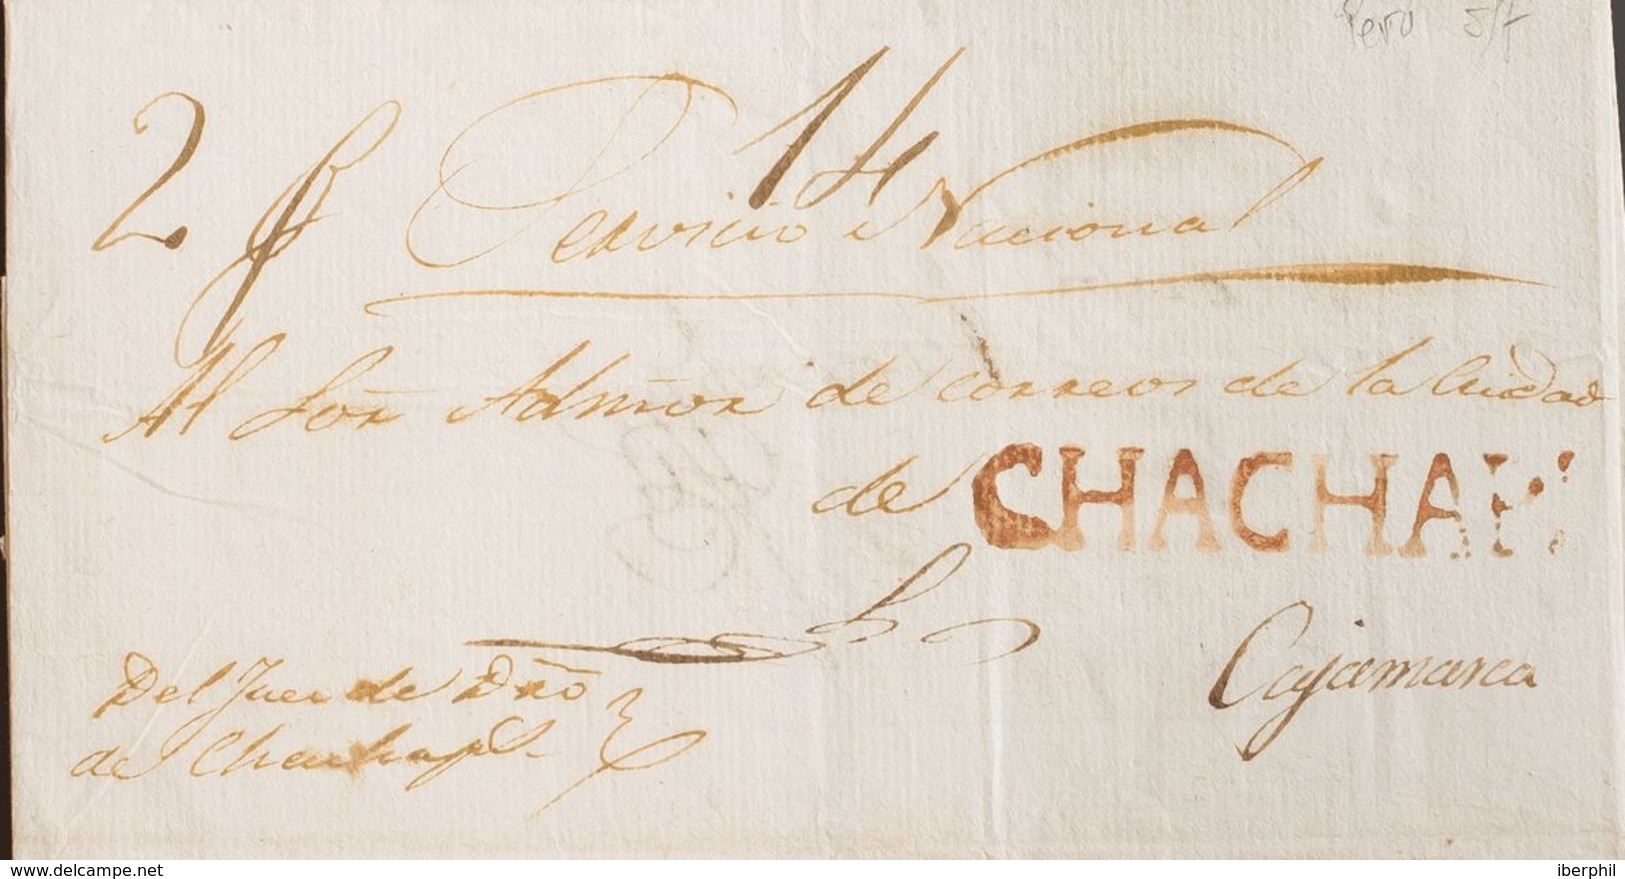 Pero
2 14
Servicio Nacional
Al Sor Admor de correos de la Ciudad
de CHACHAP
Cajamarca
Del Juez de Dño
de Chachaps
delcampe.net
iberphil